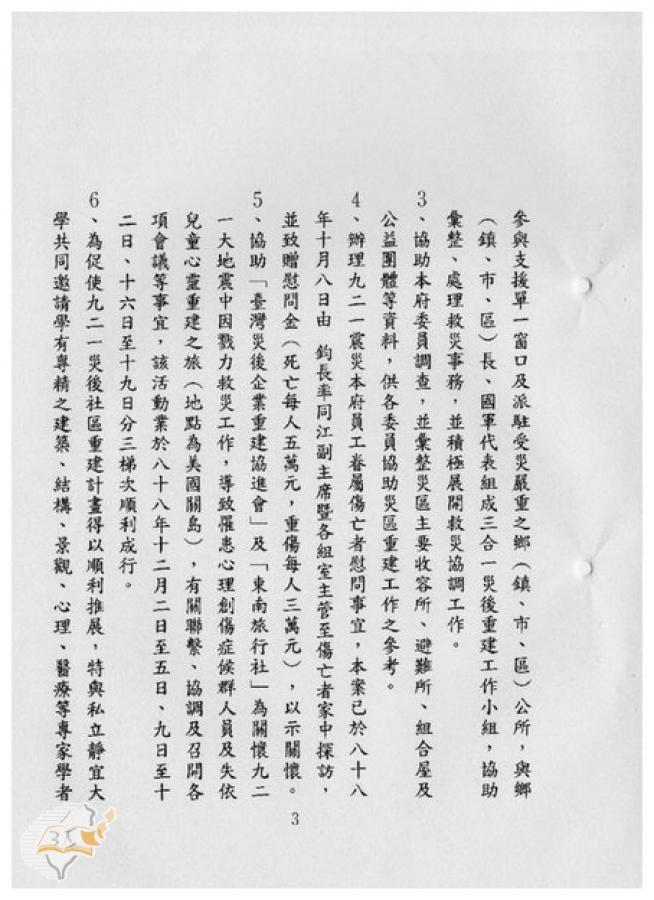 參與支援單一窗口及派駐受災嚴重之鄉（鎮、市、區）公所，與鄉
（鎮、市、區）長、國軍代表組成三合一災後重建工作小組，協助
彙整、處理救災事務，並積極展開救災協調工作。
3、協助本府委員調查，並彙整災區主要收容所、避難所、組合屋及
公益團體等資料，供各委員協助災區重建工作之參考。
4、辦理九二一震災本府員工眷屬傷亡者慰問事宜，本案已於八十八
年十月八日由　鈞長率同江副主席暨各組室主管至傷亡者家中探訪，
並致贈慰問金（死亡每人五萬元，重傷每人三萬元），以示關懷。
5、協助「臺灣災後企業重建協進會」及「東南旅行社」為關懷九二
一大地震中因戮力救災工作，導致罹患心理創傷症候群人員及失依
兒童心靈重建之旅（地點為美國關島），有關聯繫、協調及召開各
項會議等事宜，該活動業於八十八年十二月二日至五日、九日至十
二日、十六日至十九日分三梯次順利成行。
6、為促使九二一災後社區重建計畫得以順利推展，特與私立靜宜大
學共同邀請學有專精之建築、結構、景觀、心理、醫療等專家學者
3